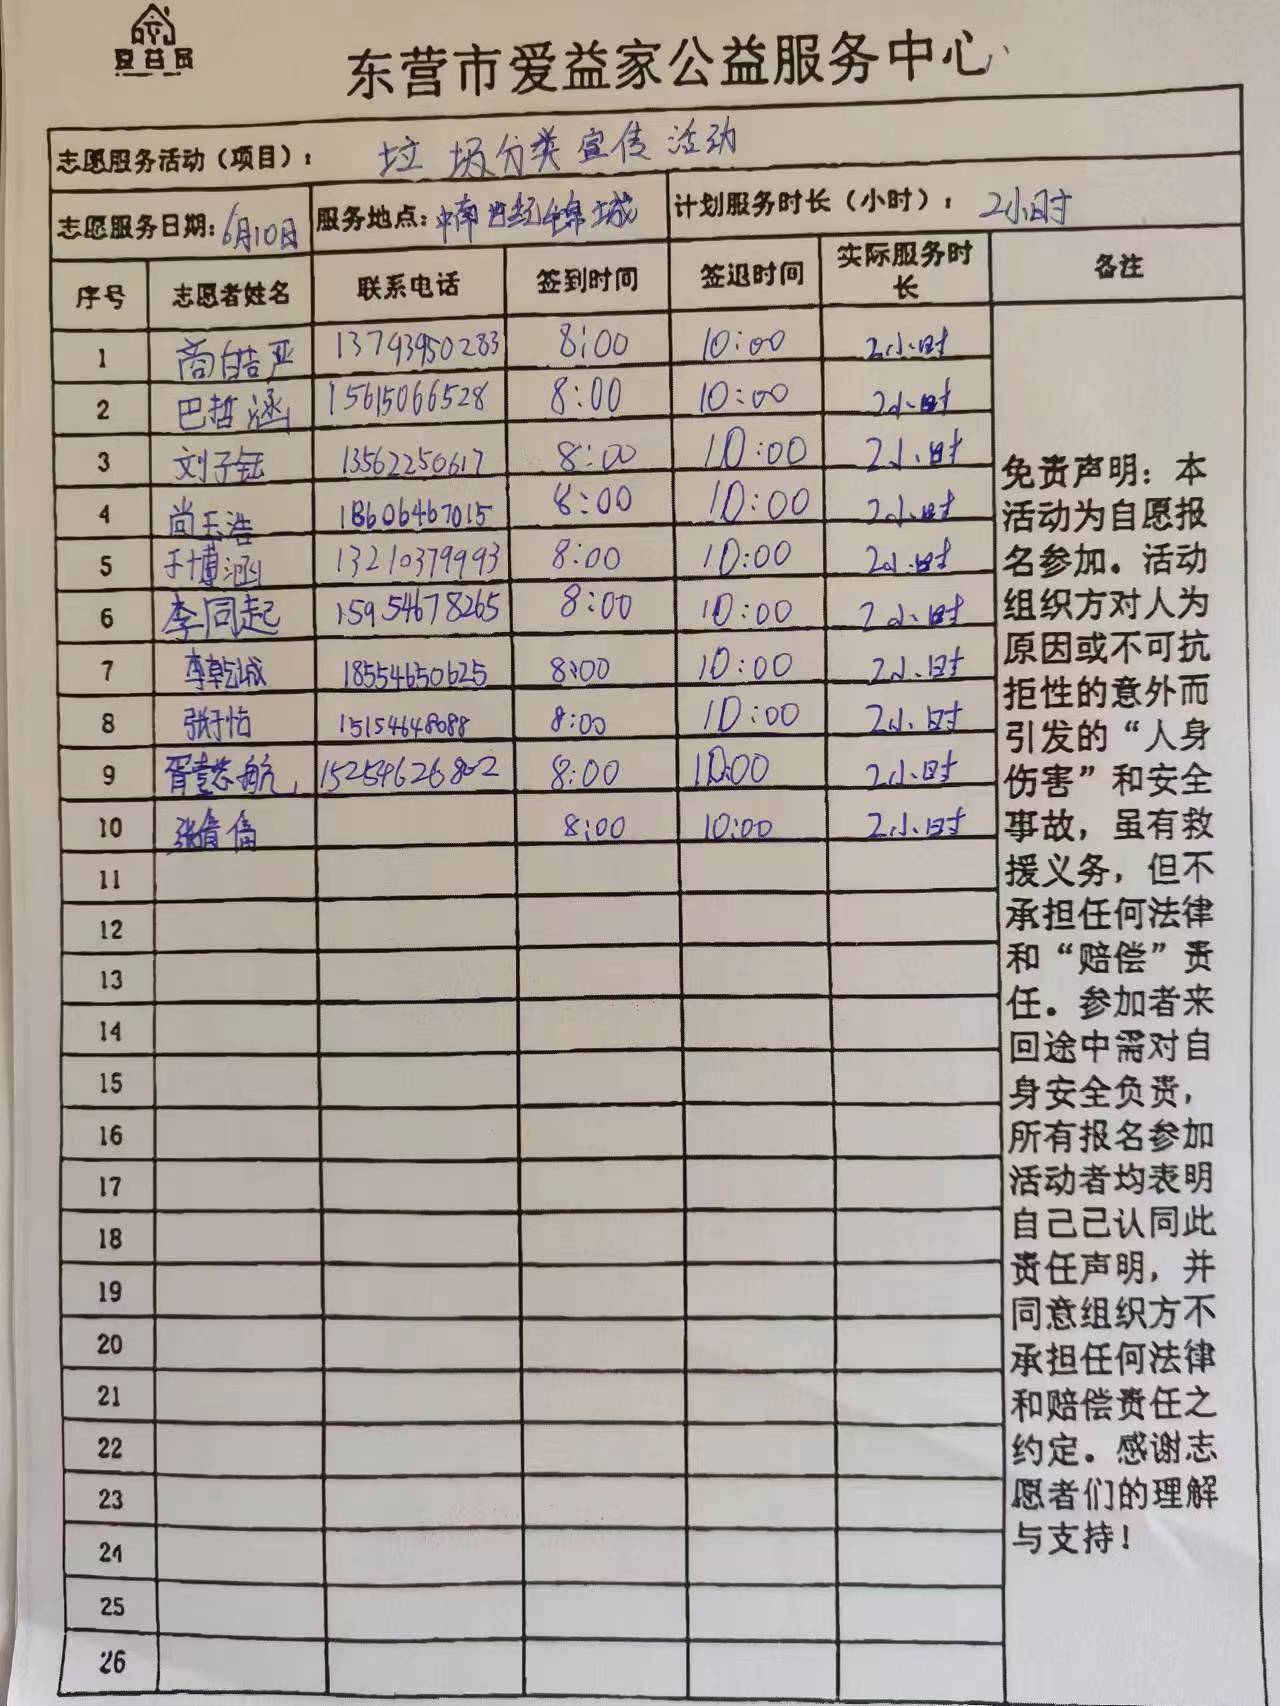 爱益家
东营市爱益家公益服务中心
志愿服务活动（项目）： 垃圾分类宣传活动
志愿服务日期：6月10日 服务地点：中南世纪锦城 计划服务时长（小时）：2小时
序号 志愿者姓名 联系电话 签到时间 签退时间 实际服务时长 备注
1 商皓严 13793950283 8:00 10:00 2小时
2 巴哲涵 15615066528 8:00 10:00 2小时
3 刘子钰 13562250617 8:00 10:00 2小时
4 尚玉浩 18606467015 8:00 10:00 2小时
5 于博涵 13210379993 8:00 10:00 2小时
6 李同起 15954678265 8:00 10:00 2小时
7 李乾城 18554650625 8:00 10:00 2小时
8 张子怡 15154648088 8:00 10:00 2小时
9 航 15254626802 8:00 10:00 2小时
10 张 8:00 10:00 2小时
11
12
13
14
15
16
17
18
19
20
21
22
23
24
25
26
免责声明：本
活动为自愿报
名参加。活动
组织方对人为
原因或不可抗
拒性的意外而
引发的“人身
伤害”和安全
事故，虽有救
援义务，但不
承担任何法律
和“赔偿”责
任。参加者来
回途中需对自
身安全负责，
所有报名参加
活动者均表明
自己已认同此
责任声明，并
同意组织方不
承担任何法律
和赔偿责任之
约定。感谢志
愿者们的理解
与支持！